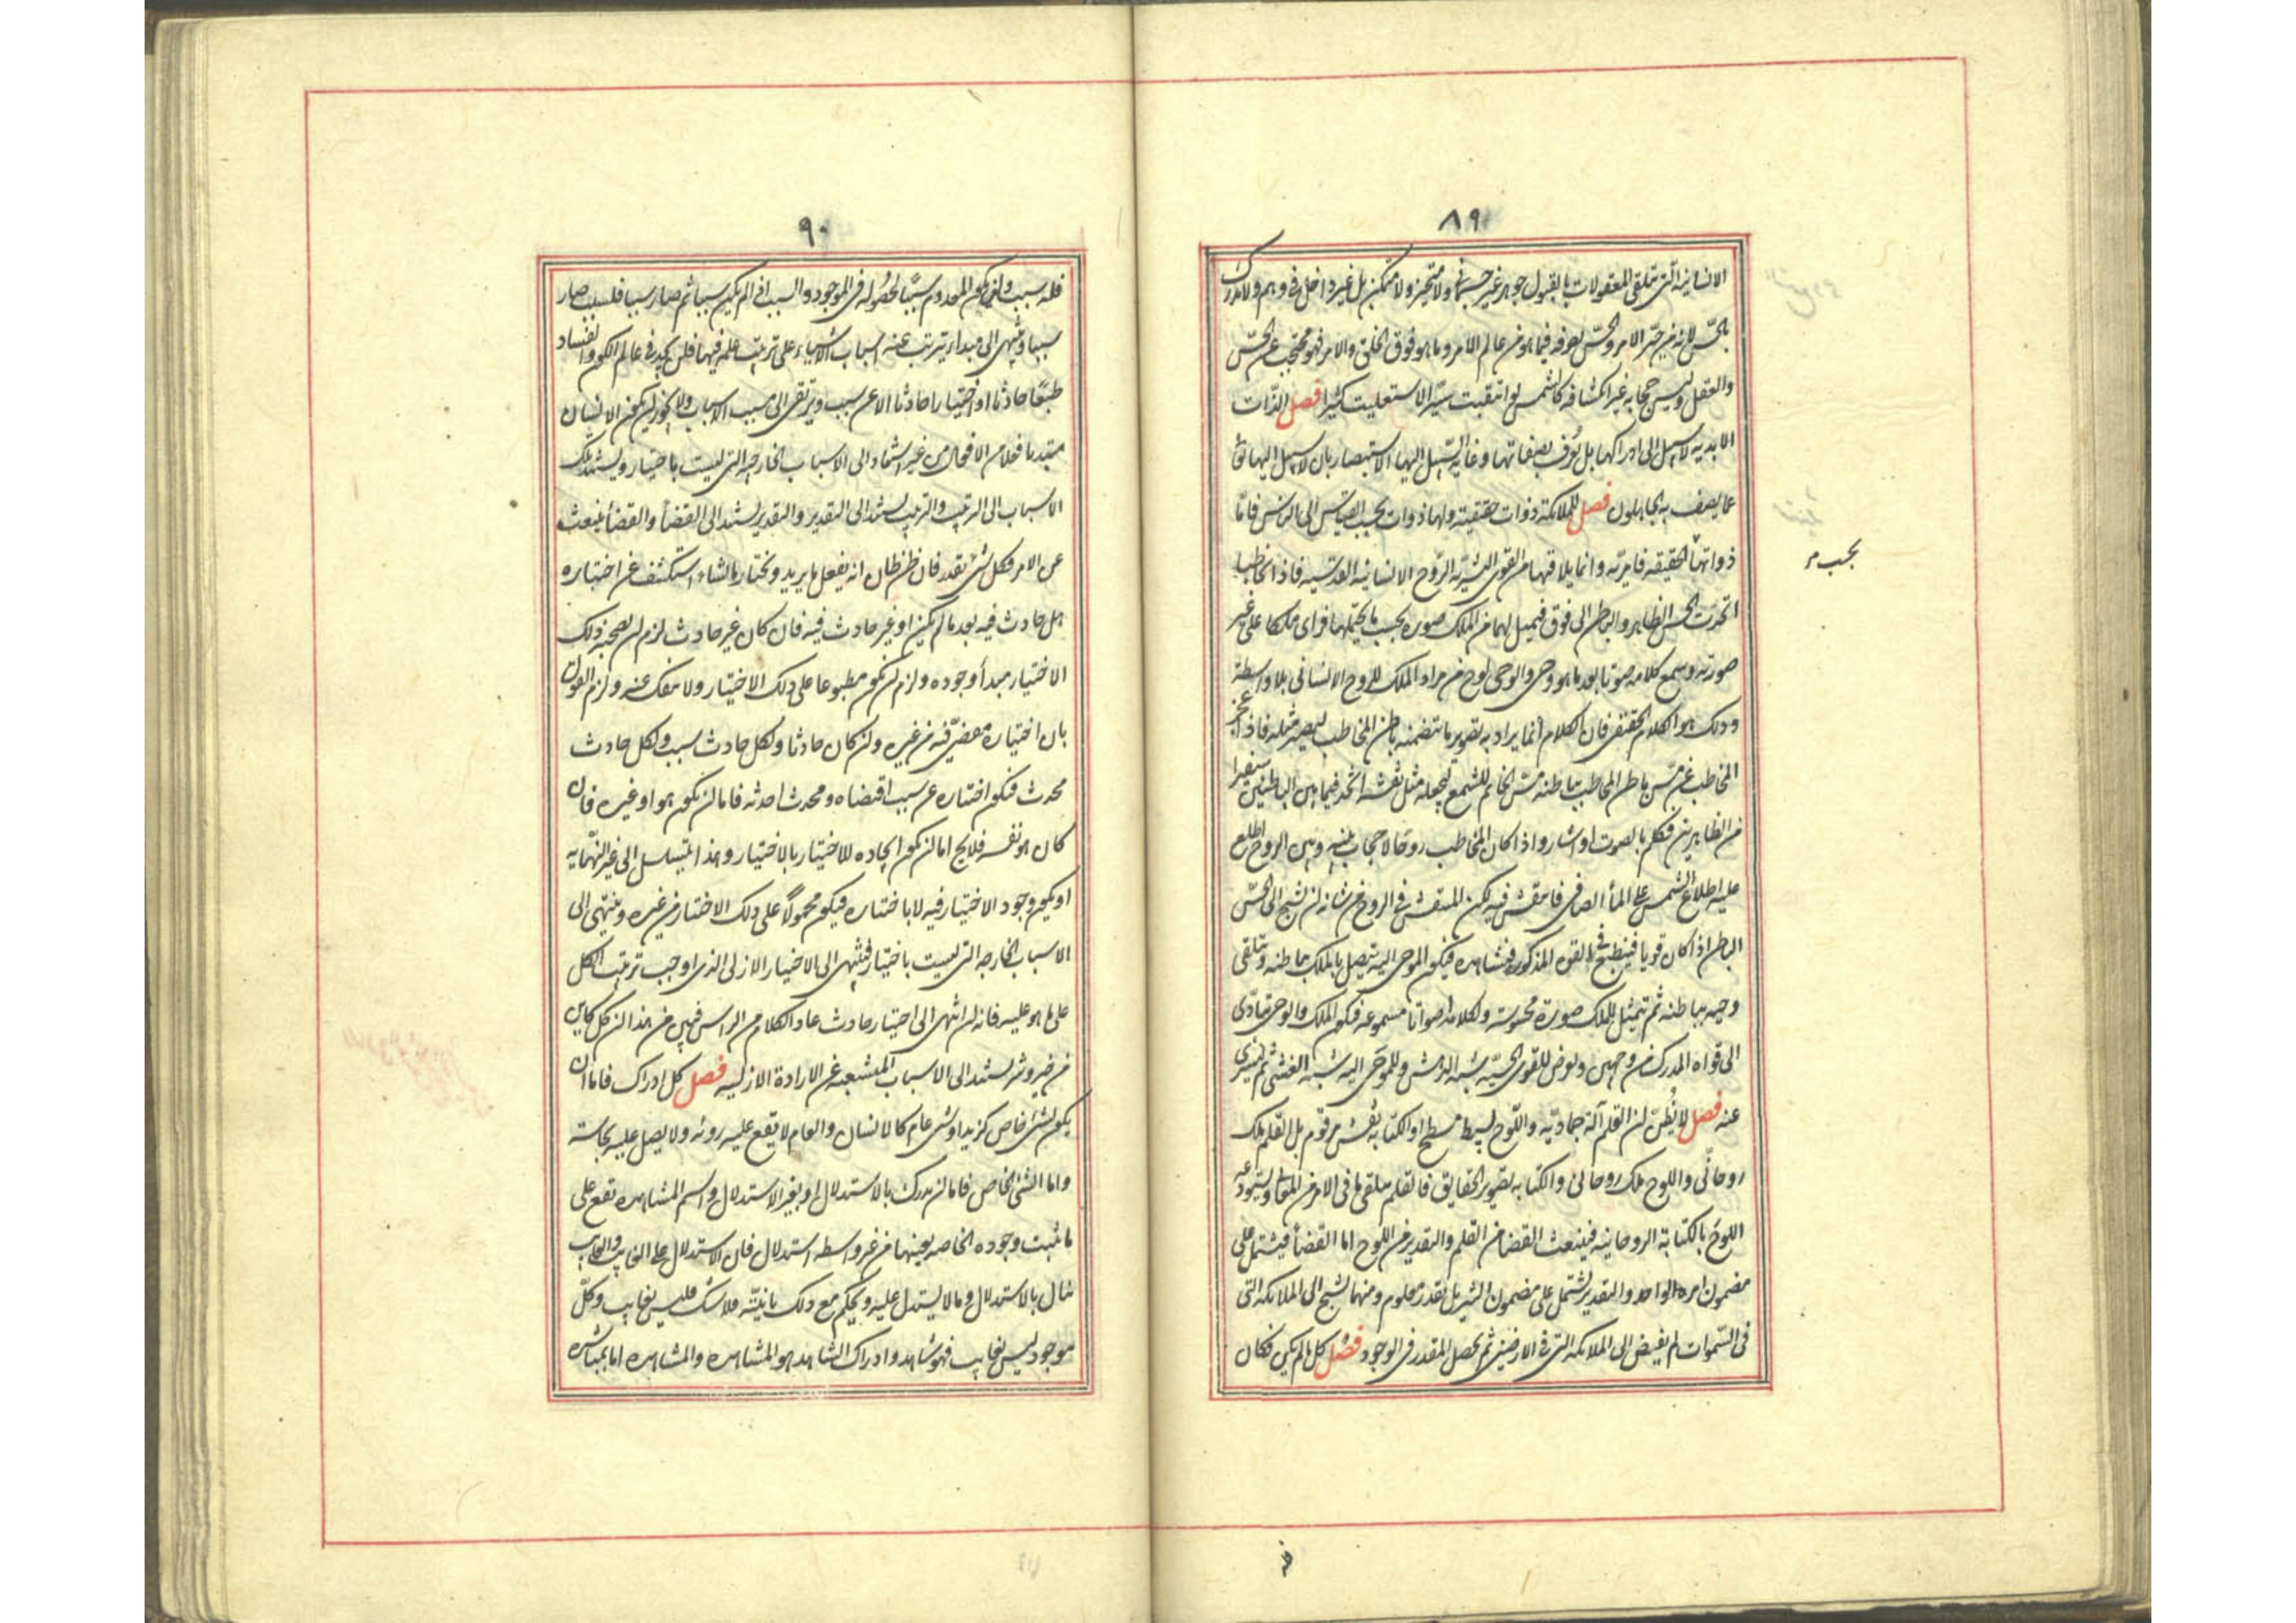 ٨٩
الانسانية التى تتلقى المعقولات بالقبول جوهر غير جسمانى ولا متحيز ولا متمكن بل غير داخل فى وهم ولا مدرك
بالحس لانه من حيز الامر والحس تصرفه فيما هو من عالم الامر وما هو فوق الخلق والامر فهو محتجب عن الحس
والعقل وليس حجابه غير انكشافه كالشمس لو انتقبت يسيرا لاستعلنت كثيرا فصل الذات
الابدية لا سبيل الى ادراكها بل تعرف بصفاتها وغاية السبيل اليها الاستبصار بان لا سبيل اليها تعالى
عما يصف به الجاهلون فصل للملائكة ذوات حقيقية ولها ذوات بحسب القياس الى الناس فاما
ذواتها الحقيقية فامرية وانما يلاقيها من القوى البشرية الروح الانسانية القدسية فاذا تخاطبا
انجذب الحس الظاهر والباطن الى فوق فيتمثل لها من الملك صورة بحسب ما يحتملها فراى ملكا على غير
صورته وسمع كلامه صوتا بعد ما هو وحى والوحى لوح من مراد الملك للروح الانسانى بلا واسطة
وذلك هو الكلام الحقيقى فان الكلام انما يراد به تصوير ما يتضمنه باطن المخاطب ليصير مثله فاذا عجز
المخاطب عن مس باطن المخاطب بباطنه مس الخاتم للشمع ليجعله مثل نقشه اتخذ فيما بين الباطنين سفيرا
من الظاهرين فكلم بالصوت او اشار واذا كان المخاطب روحا لا حجاب بينه وبين الروح اطلع
عليه اطلاع الشمس على الماء الصافى فانتقش فيه لكن المنتقش فى الروح من شانه ان يشبح الى الحس
الباطن اذا كان قويا فينطبع فى القوة المذكورة فتشاهده فيكون الموحى اليه يتصل بالملك بباطنه ويتلقى
وحيه بباطنه ثم يتمثل للملك صورة محسوسة ولكلامه اصواتا مسموعة فيكون الملك والوحى يتأدى
الى قواه المدركة من وجهين ويعرض للقوى الحسية شبه الدهش وللموحى اليه شبه الغشى ثم يسرى
عنه فصل لا تظن ان القلم آلة جمادية واللوح بسيط مسطح او الكتابة نقش مرقوم بل القلم ملك
روحانى واللوح ملك روحانى والكتابة تصوير الحقايق فالقلم يتلقى ما فى الامر من المعانى ويستودعه
اللوح بالكتابة الروحانية فينبعث القضا من القلم والتقدير من اللوح اما القضأ فيشتمل على
مضمون امره الواحد والتقدير يشتمل على مضمون التنزيل بقدر معلوم ومنها يشبح الى الملائكة التى
فى السموات ثم يفيض الى الملائكة التى فى الارضين ثم يحصل المقدر فى الوجود فصل كل ما لم يكن فكان
بحسب م
٩٠
فله سبب ولن يكون المعدوم سببا لحصوله فى الموجود والسبب اذا لم يكن سببا ثم صار سببا فلسبب صار
سببا وينتهى الى مبدا يترتب عنه اسباب الاشياء على ترتيب علمه فيها فلن تجد فى عالم الكون والفساد
طبعا حادثا او اختيارا حادثا الا عن سبب ويرتقى الى مسبب الاسباب ولا يجوز ان يكون الانسان
مبتدءا فعلا من الافعال من غير استناد الى الاسباب الخارجية التى ليست باختياره ويستند تلك
الاسباب الى الترتيب والترتيب يستند الى التقدير والتقدير يستند الى القضأ والقضأ ينبعث
عن الامر فكل شئ بقدر فان ظن ظان انه يفعل ما يريد ويختار ما يشاء استكشف عن اختياره
هل حادث فيه بعد ما لم يكن او غير حادث فيه فان كان غير حادث لزم ان يصحبه ذلك
الاختيار مبدأ وجوده ولزم ان يكون مطبوعا على ذلك الاختيار ولا ينفك عنه ولزم القول
بان اختياره مقضى فيه من غيره وان كان حادثا ولكل حادث سبب ولكل حادث
محدث فيكون اختياره عن سبب اقتضاه ومحدث احدثه فاما ان يكون هو او غيره فان
كان هو نفسه فلا يخ اما ان يكون ايجاده للاختيار بالاختيار وهذا يتسلسل الى غير النهايه
او يكون وجود الاختيار فيه لا باختياره فيكون محمولا على ذلك الاختيار من غيره وينتهى الى
الاسباب الخارجه التى ليست باختياره فينتهى الى الاختيار الازلى الذى اوجب ترتيب الكل
على ما هو عليه فانه لن انتهى الى اختيار حادث عاد الكلام من الراس فبين من هذا ان كل كاين
من خير وشر يستند الى الاسباب المنشعبة عن الارادة الازلية فصل كل ادراك فاما ان
يكون لشئ خاص كزيد او شئ عام كالانسان والعام لا يقع عليه روية ولا يصل عليه بحاسة
واما الشئ الخاص فاما ان يدرك بالاستدلال او بغير الاستدلال واسم المشاهده تقع على
ما ثبت وجوده الخاصه بعينها من غير واسطه استدلال فان الاستدلال على الغايب والغايب
ينال بالاستدلال وما لا يستدل عليه ويحكم مع ذلك بانيته فلا شك فليس بغايب وكل
موجود ليس بغايب فهو شاهد وادراك الشاهد هو المشاهده والمشاهده اما بمباشرة